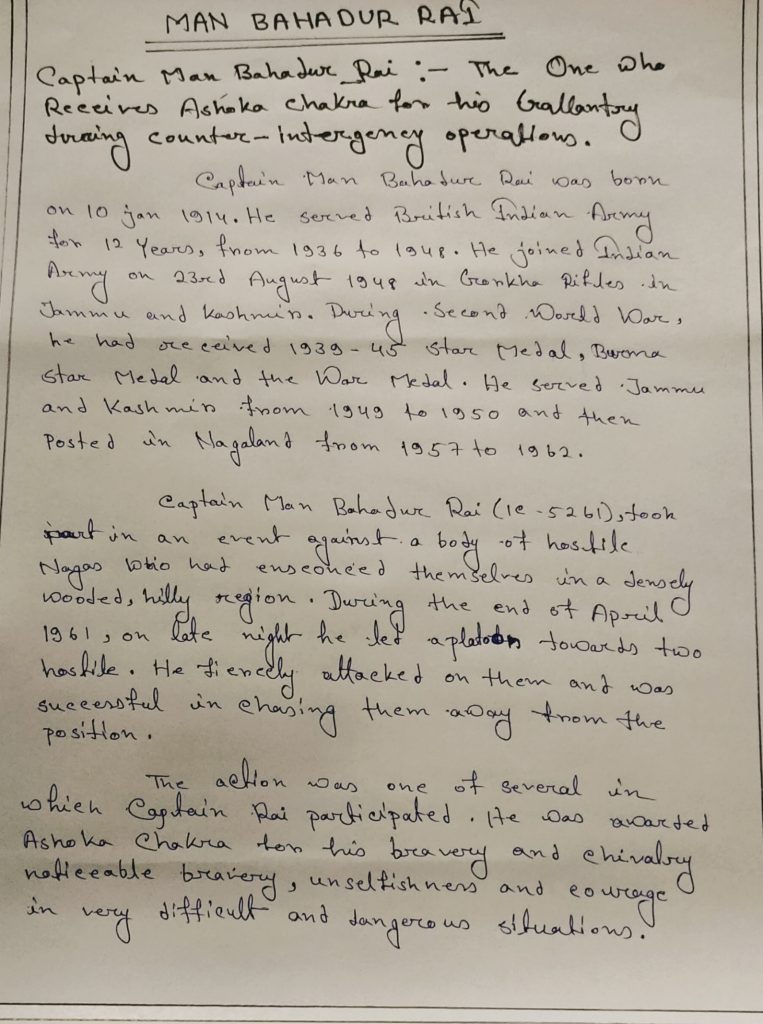 MAN BAHADUR RAI
Captain Man Bahadur Rai :- The One who
Receives Ashoka Chakra for his Gallantry
during counter-intergency operations.
Captain Man Bahadur Rai was born
on 10 jan 1914. He served British Indian Army
for 12 Years, from 1936 to 1948. He joined Indian
Army on 23rd August 1948 in Gorkha Rifles in
Jammu and Kashmir. During Second World War,
he had received 1939-45 Star Medal, Burma
Star Medal and the War Medal. He served Jammu
and Kashmir from 1949 to 1950 and then
Posted in Nagaland from 1957 to 1962.
Captain Man Bahadur Rai (Ic-5261), took
part in an event against a body of hostile
Nagas who had ensconced themselves in a densely
wooded, hilly region. During the end of April
1961, on late night he led a platoon towards two
hostile. He fiercely attacked on them and was
successful in chasing them away from the
position.
The action was one of several in
which Captain Rai participated. He was awarded
Ashoka Chakra for his bravery and chivalry
noticeable bravery, unselfishness and courage
in very difficult and dangerous situations.